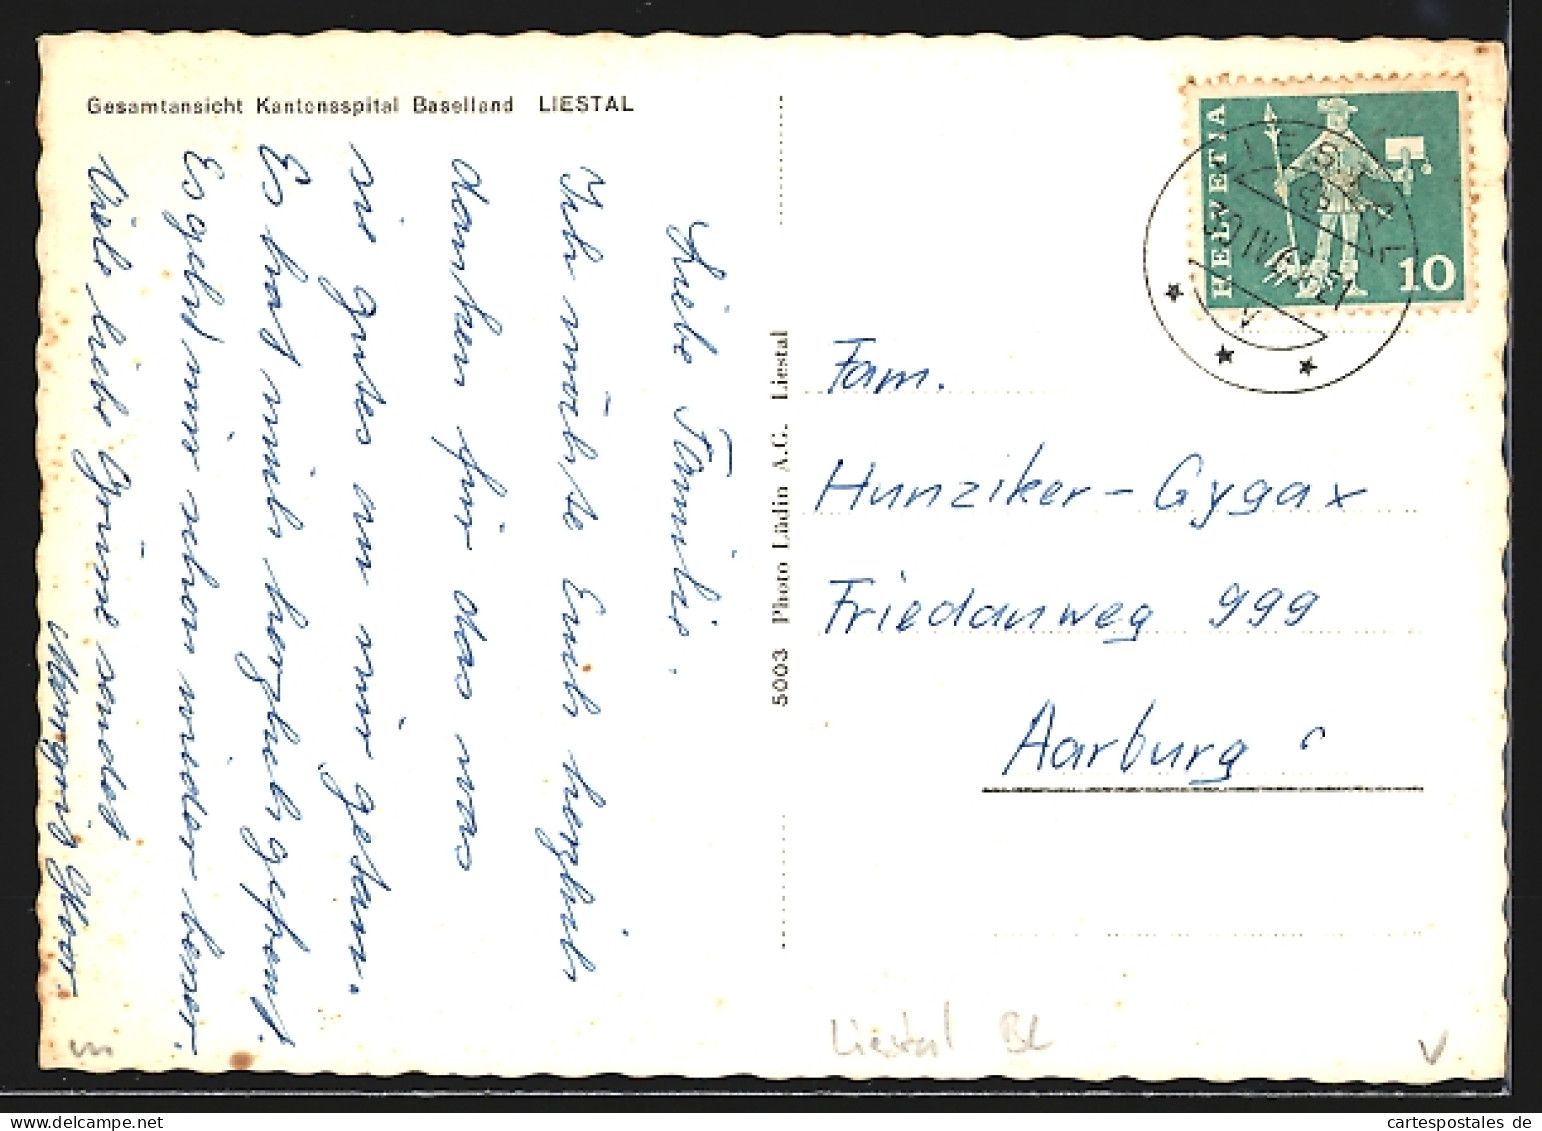 Gesamtansicht Kantonsspital Baselland LIESTAL
Liebe Familie.
Ich möchte Euch herzlich
danken für das was
sie gutes an mir getan.
Es hat mich herzlich gefreut.
Es geht mir schon wieder besser.
Viele liebe Grüsse sendet
5003 Photo Lüdin A.G. Liestal
HELVETIA
10
LIESTAL
Fam.
Hunziker-Gygax
Friedauweg 999
Aarburg
Liestal BL
cartespostales.de